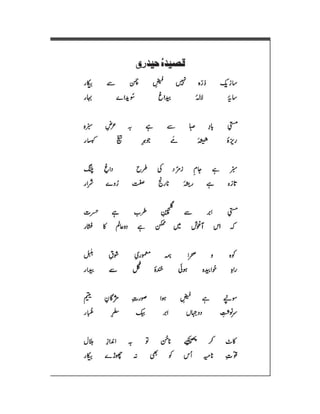 قصیدۂ حیدری
سازِ یک ذرّہ نہیں فیضِ چمن سے بیکار
سایۂ لالۂ بیداغ سُویداے بہار
مستیِ بادِ صبا سے ہے بہ عرضِ سبزہ
ریزۂ شیشۂ مے جوہرِ تیغِ کہسار
سبز ہے جامِ زمرّد کی طرح داغِ پلنگ
تازہ ہے ریشۂ نارنج صفت رُوے شرار
مستیِ ابر سے گلچینِ طرب ہے حسرت
کہ اس آغوش میں ممکن ہے دوعالم کا فشار
کوہ و صحرا ہمہ معموریِ شوقِ بلبل
راہِ خوابیدہ ہوئی خندۂ گل سے بیدار
سونپے ہے فیضِ ہوا صورتِ مژگانِ یتیم
سرنوشتِ دوجہاں ابر بیک سطرِ غبار
کاٹ کر پھینکیے ناخن تو بہ اندازِ ہلال
قوّتِ نامیہ اُس کو بھی نہ چھوڑے بیکار